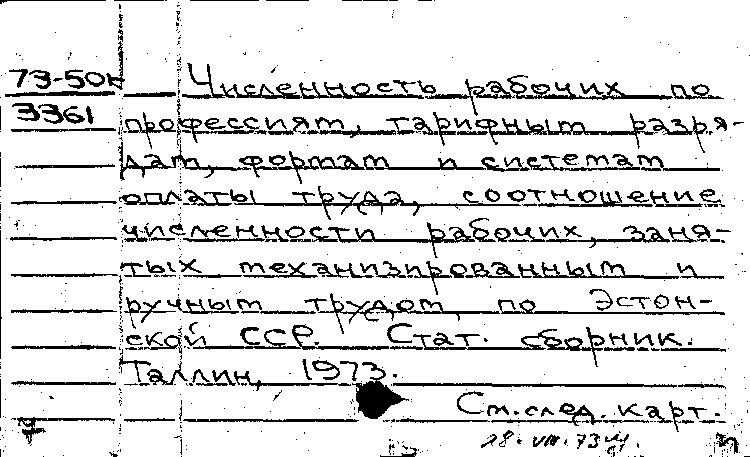 73-50к Численность рабочих по
3361 профессиям, тарифным разря-
дам, формам и системам
оплаты труда, соотношение
численности рабочих, заня-
тых механизированным и
ручным трудом по Эстон-
ской ССР. Стат. сборник.
Таллин, 1973.
См. след. карт.
28. VIII. 73